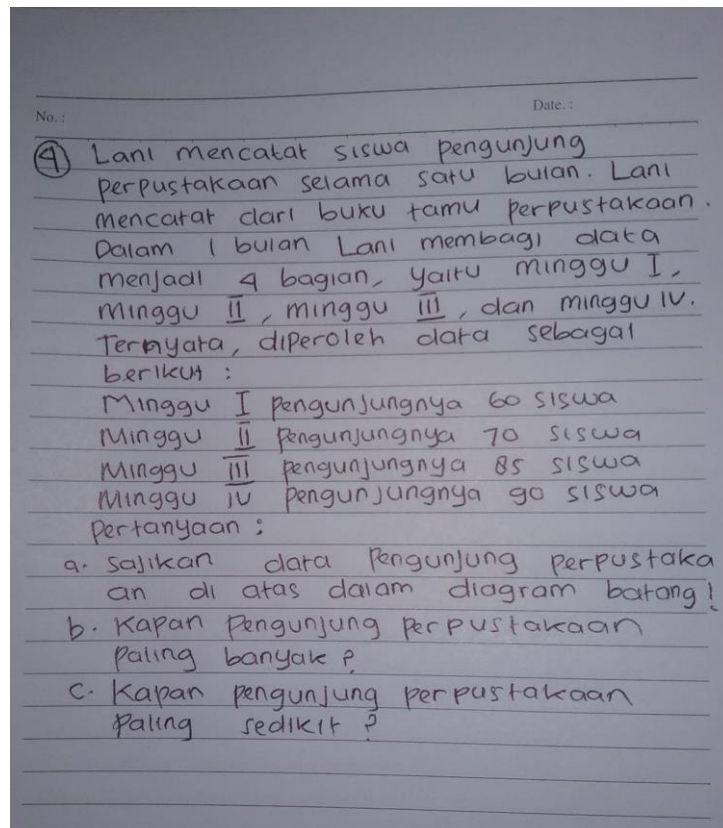 No. :
Date. :
④ Lani mencatat siswa pengunjung
perpustakaan selama satu bulan. Lani
mencatat dari buku tamu perpustakaan.
Dalam 1 bulan Lani membagi data
menjadi 4 bagian, yaitu minggu I,
minggu II, minggu III, dan minggu IV.
Ternyata, diperoleh data sebagai
berikut :
Minggu I pengunjungnya 60 siswa
Minggu II pengunjungnya 70 siswa
Minggu III pengunjungnya 85 siswa
Minggu IV pengunjungnya 90 siswa
Pertanyaan :
a. Sajikan data pengunjung perpustaka
an di atas dalam diagram batang!
b. Kapan pengunjung perpustakaan
paling banyak ?
c. Kapan pengunjung perpustakaan
paling sedikit ?